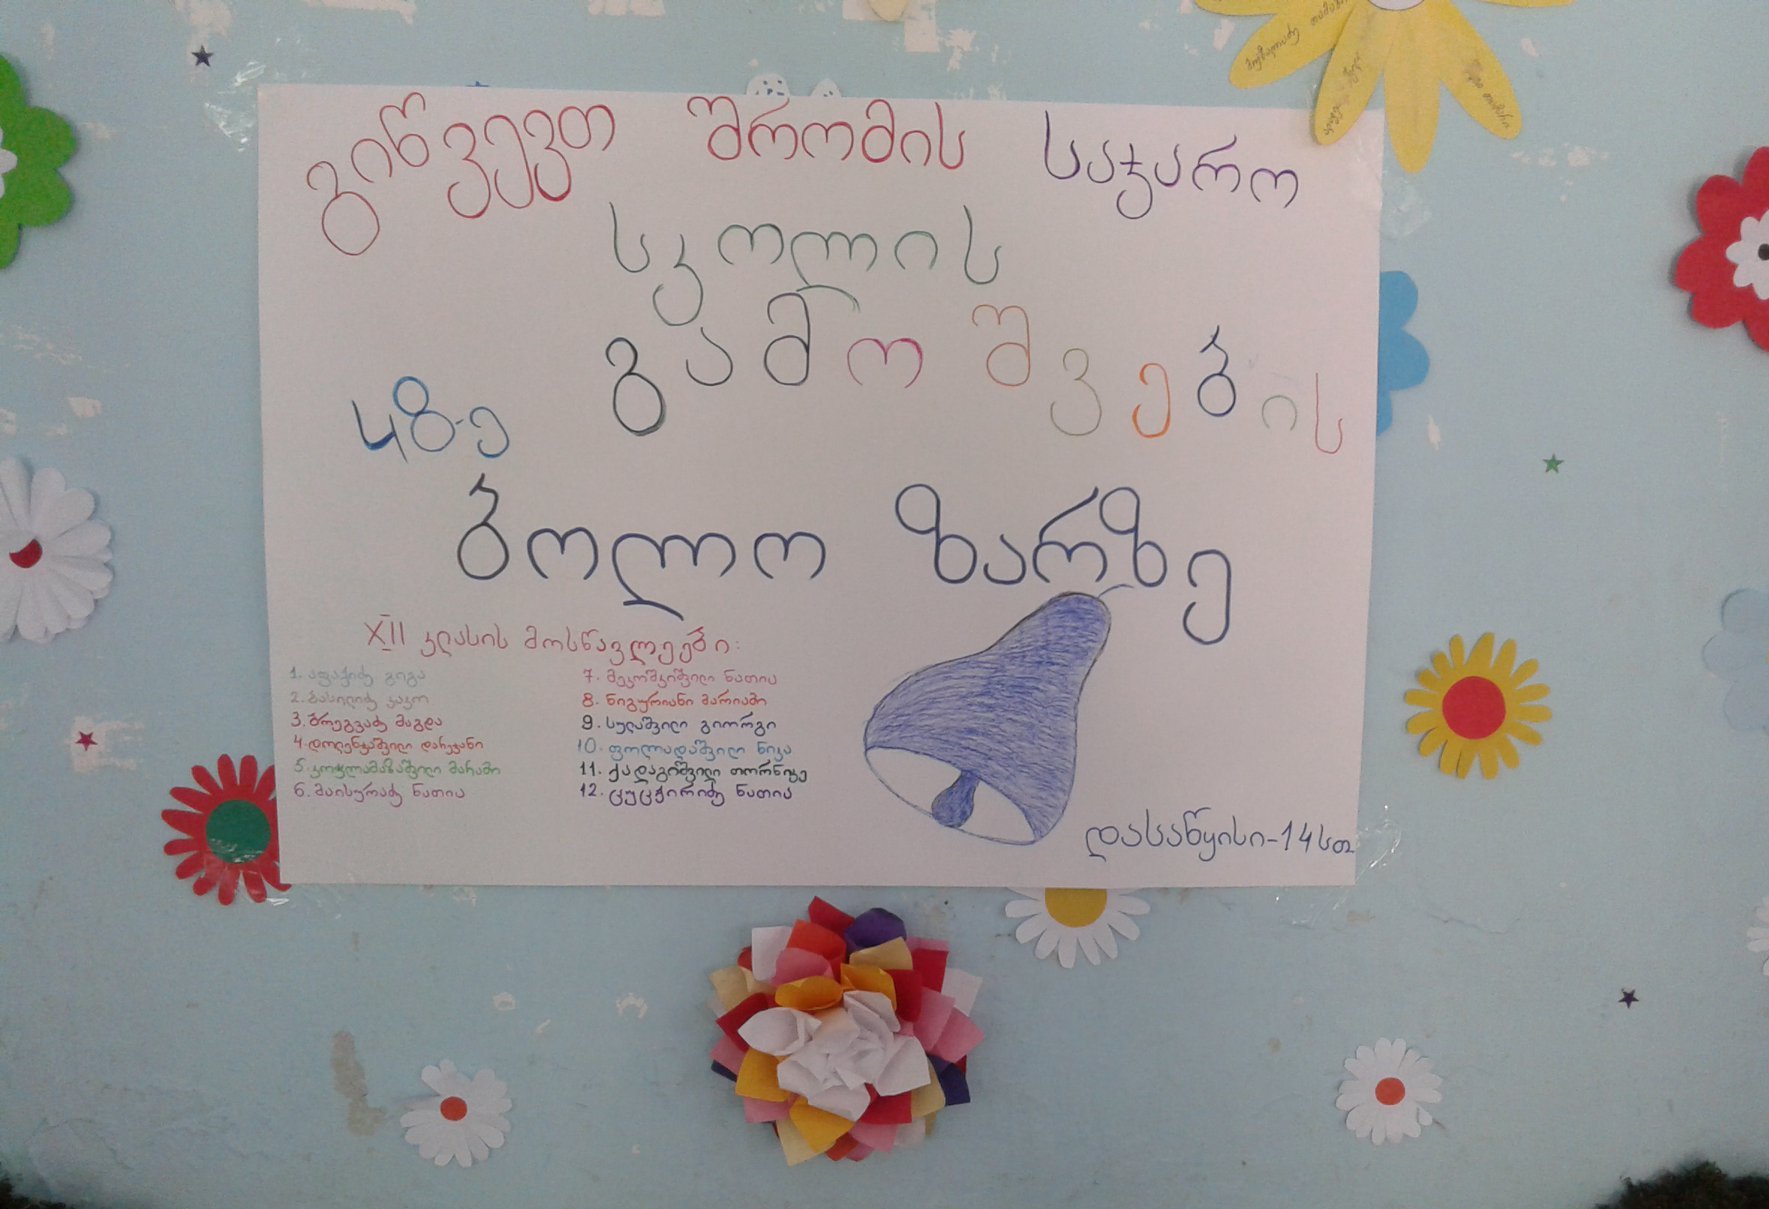 გიწვევთ შრომის საჯარო
სკოლის
48-ე გამოშვების
ბოლო ზარზე
XII კლასის მოსწავლეები:
1. აფაქიძე გიგა
2. ბასილიძე კახო
3. ბრეგვაძე მაგდა
4. დოლენჯაშვილი დარეჯანი
5. კოჭლამაზაშვილი მარიამი
6. მაისურაძე ნათია
7. მეკოშკიშვილი ნათია
8. ნიგურიანი მარიამი
9. სულაშვილი გიორგი
10. ფოლადაშვილი ნიკა
11. ქადაგიშვილი თორნიკე
12. ცუცქირიძე ნათია
დასაწყისი-14სთ.